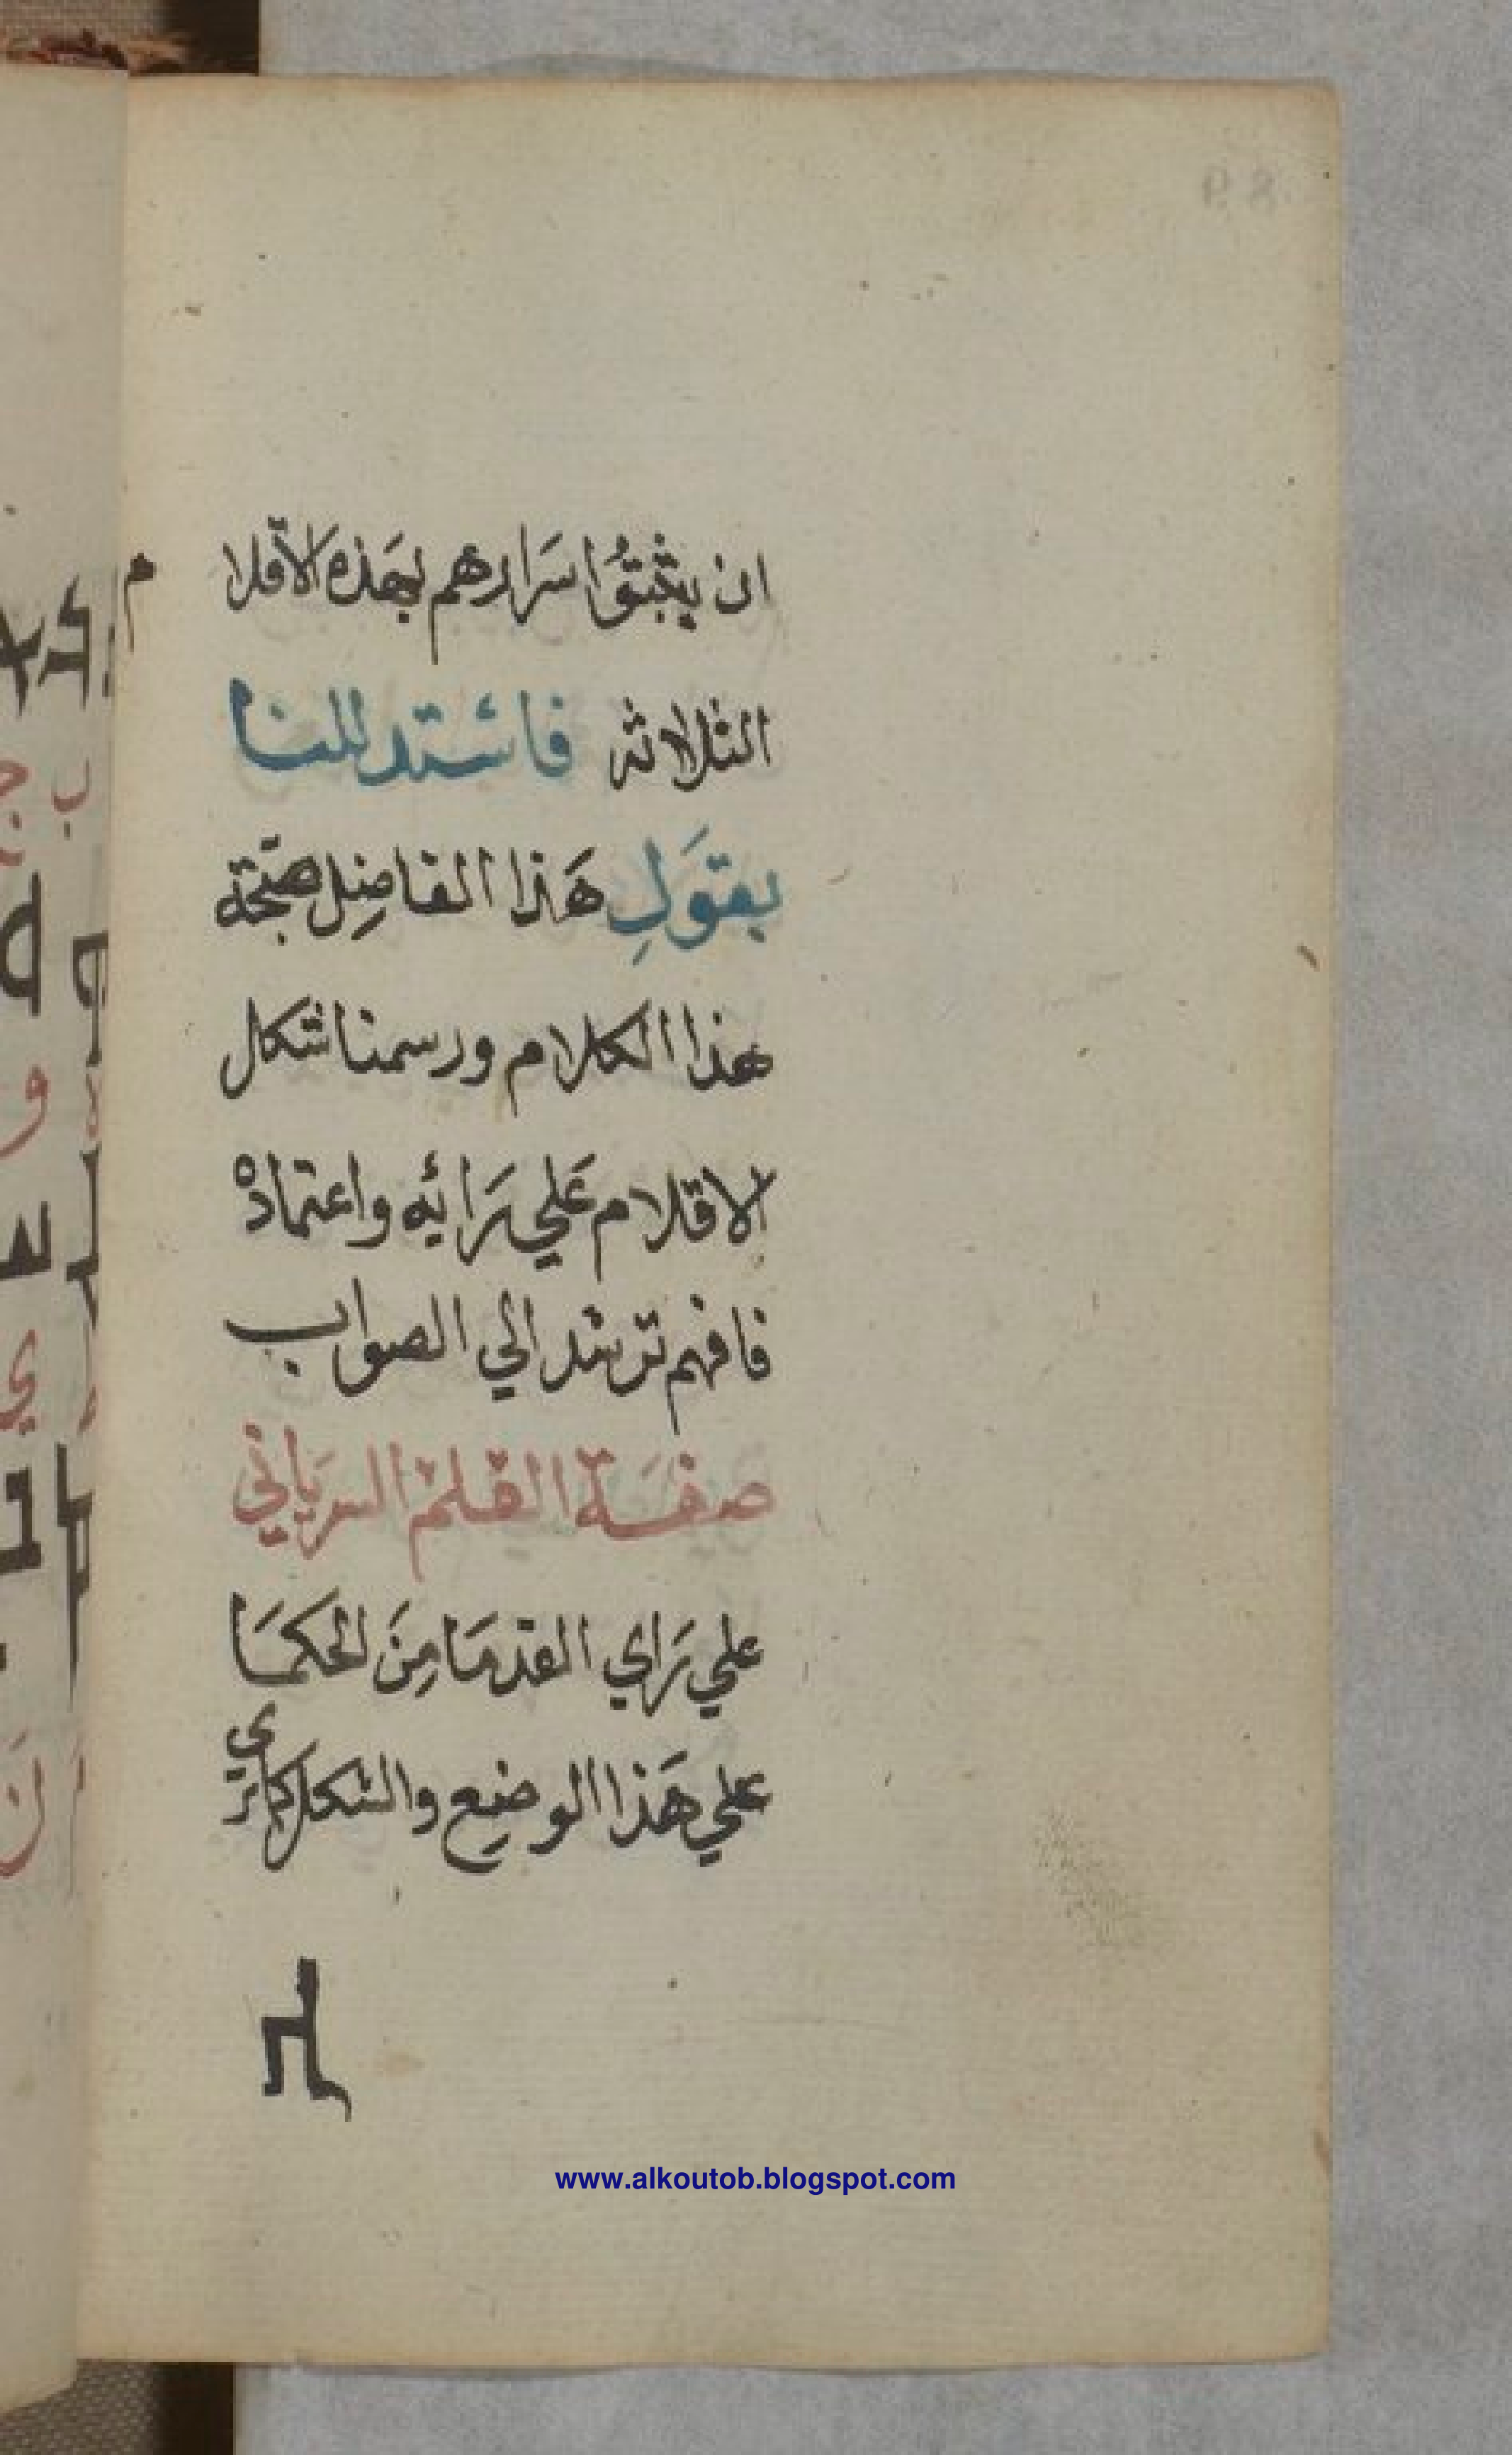 ان يثبتُوا سَرارهم بهَذه الاقلام
الثلاثه فاستدللنا
بقوَلِ هَذا الفاضِل صحّة
هذا الكلام ورسمنا شكل
الاقلام عَلي رَائِه واعتمادهْ
فافهم ترشد الي الصواب
صفَة القلم السريَاني
علي رَاي القدمَا مِنَ الحكمَا
علي هَذا الوضِع والشكل كما تري
www.alkoutob.blogspot.com